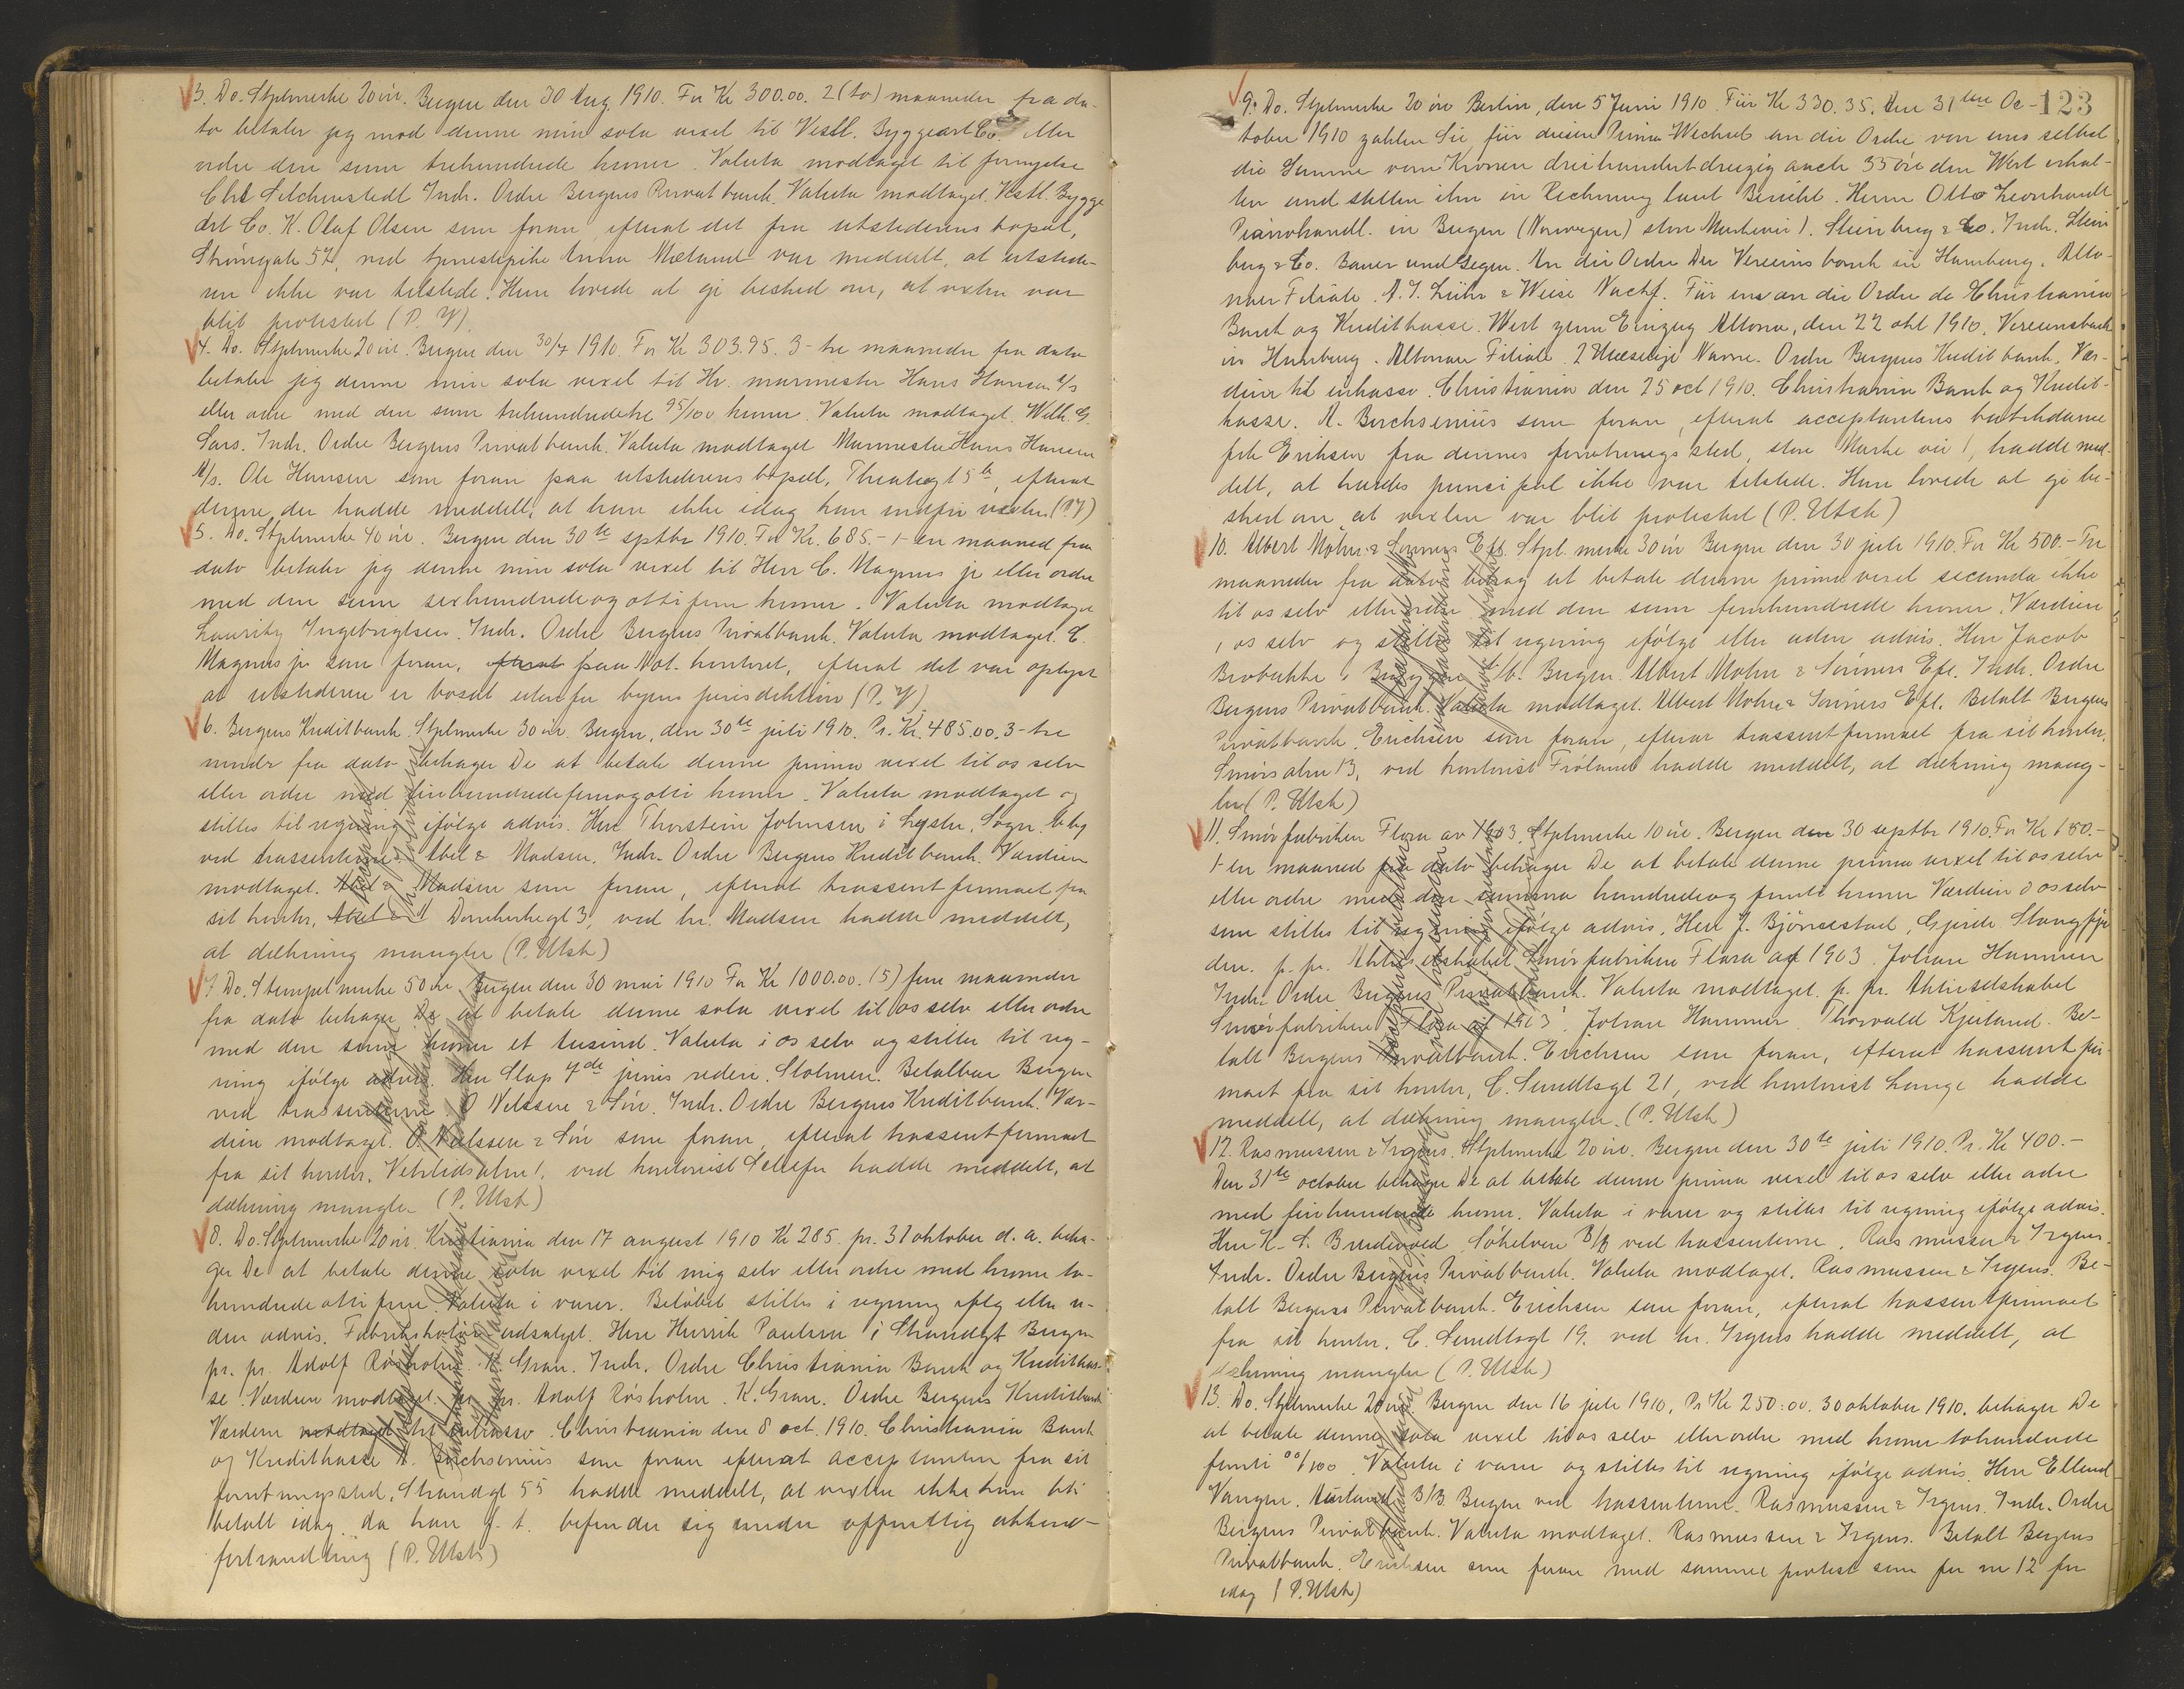 3. Do. Stplmerke 20 öre. Bergen den 30 Aug 1910. For Kr 300.00. 2 (to) maaneder fra da-
to betaler jeg mod denne min sola vexel til Vestl. Byggeart Co. eller
ordre den sum trehundrede kroner. Valuta modtaget til fornyelse
Chr. Indr. Ordre Bergens Privatbank. Valuta modtaget. Vestl. Bygge
art Co. K. Olaf Olsen som foran, efterat det fra utstederens bopæl,
Strömgate 57, ved tjenestepike Anna Mæland var meddelt, at utstede-
ren ikke var tilstede. Hun lovede at gi besked om, at vexlen var
blit protestert (P. Y)
4. Do. Stplmerke 20 öre. Bergen den 30/7 1910. For Kr 303.95. 3 - tre maaneder fra dato
betaler jeg denne min sola vexel til Hr. murmester Hans Hansen A/s
eller ordre med den sum trehundredetre 95/100 kroner. Valuta modtaget. Wilh. G.
Sars. Indr. Ordre Bergens Privatbank. Valuta modtaget Murmester Hans Hansen
A/s. Ole Hansen som foran paa utstederens bopæl, Theatergt 5 b, efterat
denne der hadde meddelt, at han ikke idag kan indfri vexlen. (P. Y)
5. Do. Stplmerke 40 öre. Bergen den 30te septbr 1910. For Kr. 685.- 1 - en maaned fra
dato betaler jeg denne min sola vexel til Herr C. Magnus jr eller ordre
med den sum sexhundredeogottifem kroner. Valuta modtaget
Lauritz Ingebrigtsen. Indr. Ordre Bergens Privatbank. Valuta modtaget. C.
Magnus jr som foran, efterat paa Not. kontoret, efterat det var oplyst
at utstederen er bosat utenfor byens jurisdiktion (P. Y)
6. Bergens Kreditbank. Stplmerke 30 öre. Bergen, den 30te juli 1910. Pr. Kr. 485.00. 3 - tre
mndr fra dato behager De at betale denne prima vexel til os selv
eller ordre med firehundredefemogotti kroner. Valuta modtaget og
stilles til regning ifølge advis. Herr Thorstein Johnsen i Lyster, Sogn. b. bg
ved trassenterne. Abel & Madsen. Indr. Ordre Bergens Kreditbank. Værdien
modtaget. Abel & Madsen som foran, efterat trassentfirmaet fra
sit kontor, Domkirkegt 3, ved hr. Madsen hadde meddelt,
at dækning mangler (P. Utsk)
7. Do. Stempelmerke 50 öre. Bergen den 30 mai 1910 For Kr 1000.00. (5) fem maaneder
fra dato behager De at betale denne sola vexel til os selv eller ordre
med den sum kroner et tusind. Valuta i os selv og stilles til reg-
ning ifølge advis. Herr Slap 7de junis rederi. Stolmen. Betalbar Bergen
ved trassenterne. O. Nilssen & Sön. Indr. Ordre Bergens Kreditbank. Vær-
dien modtaget. O. Nilssen & Sön som foran, efterat trassentfirmaet
fra sit kontor, Vetrlidsalm. 1, ved kontorist hadde meddelt, at
dækning mangler (P. Utsk)
8. Do. Stplmerke 20 öre. Kristiania den 17 august 1910 Kr 285. pr. 31 oktober d. a. beha-
ger De at betale denne sola vexel til mig selv eller ordre med kroner to-
hundredeottifem. Valuta i varer. Beløbet stilles i regning eller u-
den advis. Herr Henrik Paulsen i Strandgt Bergen
pr. pr. Adolf Røsholm. K. Gran. Indr. Ordre Christiania Bank og Kreditkas-
se. Værdien modtaget. pr. pr. Adolf Røsholm. K. Gran. Ordre Bergens Kreditbank
Værdien modtaget til inkasso. Christiania den 8 oct. 1910. Christiania Bank
og Kreditkasse som foran efterat acceptanten fra sit
forretningssted, Strandgt 55 hadde meddelt, at vexlen ikke kan bli
betalt idag da han p. t. befinder sig under offentlig akkord-
forhandling (P. Utsk)
123
9. Do. Stplmerke 20 öre Berlin, den 5 Juni 1910. Für Kr 330.35. Am 31ten Oc-
tober 1910 zahlen Sie für diesen Prima-Wechsel an die Ordre von uns selbst
die Summe von Kronen dreihundertdreizig auch 35 öre den Wert erhal-
ten und stellen ihn in Rechnung laut Bericht. Herrn Otto Leonhardt
Pianohandl. in Bergen (Norwegen) store Markevei 1. Steinberg & Co. Indr. Stein
berg & Co. An die Ordre Der Vereinsbank in Hamburg. Alto-
naer Filiale. Lühr & Weise Nachf. Für uns an die Ordre de Christiania
Bank og Kreditkasse. Wert zum Einzug Altona, den 22 okt 1910. Vereinsbank
in Hamburg. Altonaer Filiale. 2 Ulæselige Navne. Ordre Bergens Kreditbank. Vær-
dien til inkasso. Christiania den 25 oct 1910. Christiania Bank og Kredit-
kasse. som foran, efterat acceptantens butikdame
frk Eriksen fra dennes forretningssted, store Markevei 1, hadde med-
delt, at hendes principal ikke var tilstede. Hun lovede at gi be-
sked om at vexlen var blit protestert (P. Utsk)
10. Albert Mohn & Sönners Eft. Stpl. merke 30 öre Bergen den 30 juli 1910. For Kr 500.- Tre
maaneder fra dato behag at betale denne prima vexel secunda ikke
til os selv eller ordre med den sum femhundrede kroner. Værdien
i os selv og stilles til regning ifølge eller uden advis. Herr Jacob
Brobakke b. Bergen. Albert Mohn & Sönners Eft. Indr. Ordre
Bergens Privatbank. Valuta modtaget. Albert Mohn & Sönners Eft. Betalt Bergens
Privatbank. Erichsen som foran, efterat trassentfirmaet fra sit kontor,
Smörsalm 13, ved kontorist Fröland hadde meddelt, at dækning mang-
ler (P. Utsk)
11. Smörfabriken Flora av 1903. Stplmerke 10 öre. Bergen den 30 septbr 1910. For Kr 150.-
1 - en maaned fra dato behager De at betale denne prima vexel til os selv
eller ordre med den summa hundredeog femti kroner Værdien i os selv
som stilles til regning ifølge advis. Herr J. Björnestad, Gjerde, Stangfjor
den. p. pr. Aktieselskabet Smörfabriken Flora af 1903. Johan Hammer
Indr. Ordre Bergens Privatbank. Valuta modtaget. p. pr. Aktieselskabet
Smörfabriken Flora af 1903. Johan Hammer. Thorvald Kjerland. Be-
talt Bergens Privatbank. Erichsen som foran, efterat trassentfir-
maet fra sit kontor, C. Sundtsgt 21, ved kontorist Lange hadde
meddelt, at dækning mangler. (P. Utsk)
12. Rasmussen & Irgens. Stplmerke 20 öre. Bergen den 30te juli 1910. Pr. Kr 400.-
Den 31te october behager De at betale denne prima vexel til os selv eller ordre
med firehundrede kroner. Valuta i varer og stilles til regning ifølge advis.
Herr K. S. Søkelven B/B ved trassenterne. Rasmussen & Irgens.
Indr. Ordre Bergens Privatbank. Valuta modtaget. Rasmussen & Irgens. Be-
talt Bergens Privatbank. Erichsen som foran, efterat trassentfirmaet
fra sit kontor, C. Sundtsgt 19. ved hr. Irgens hadde meddelt, at
dækning mangler (P. Utsk)
13. Do. Stplmerke 20 öre. Bergen den 16 juli 1910. Pr Kr 250:00. 30 oktober 1910. behager De
at betale denne sola vexel til os selv eller ordre med kroner tohundrede
femti 00/100. Valuta i varer og stilles til regning ifølge advis. Herr Ellend
Vangen. Aurland B/B. Bergen ved trassenterne. Rasmussen & Irgens. Indr. Ordre
Bergens Privatbank. Valuta modtaget. Rasmussen & Irgens. Betalt Bergens
Privatbank. Erichsen som foran med samme protest som for nr 12 for
idag (P. Utsk)